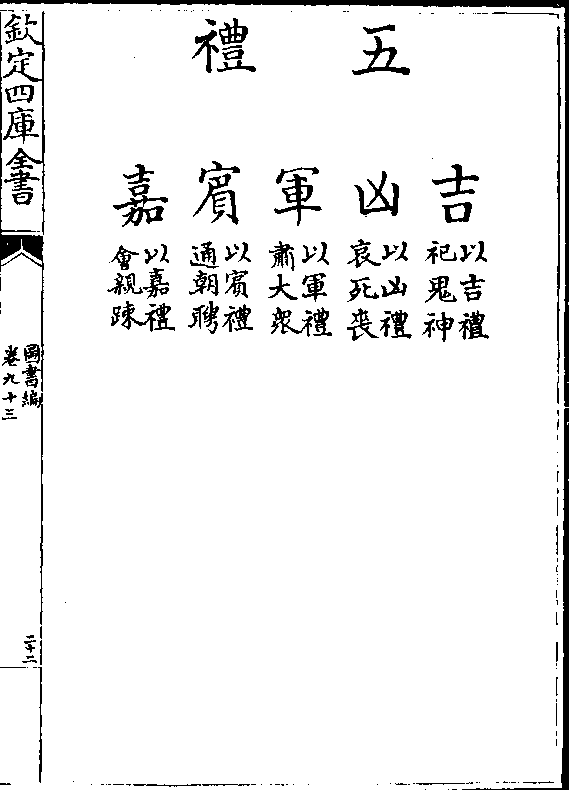 五禮
吉
以吉禮
祀鬼神
凶
以凶禮
哀死喪
軍
以軍禮
肅大衆
賓
以賓禮
通朝聘
嘉
以嘉禮
會親踈
欽定四庫全書
圖書編
卷九十三
二十二